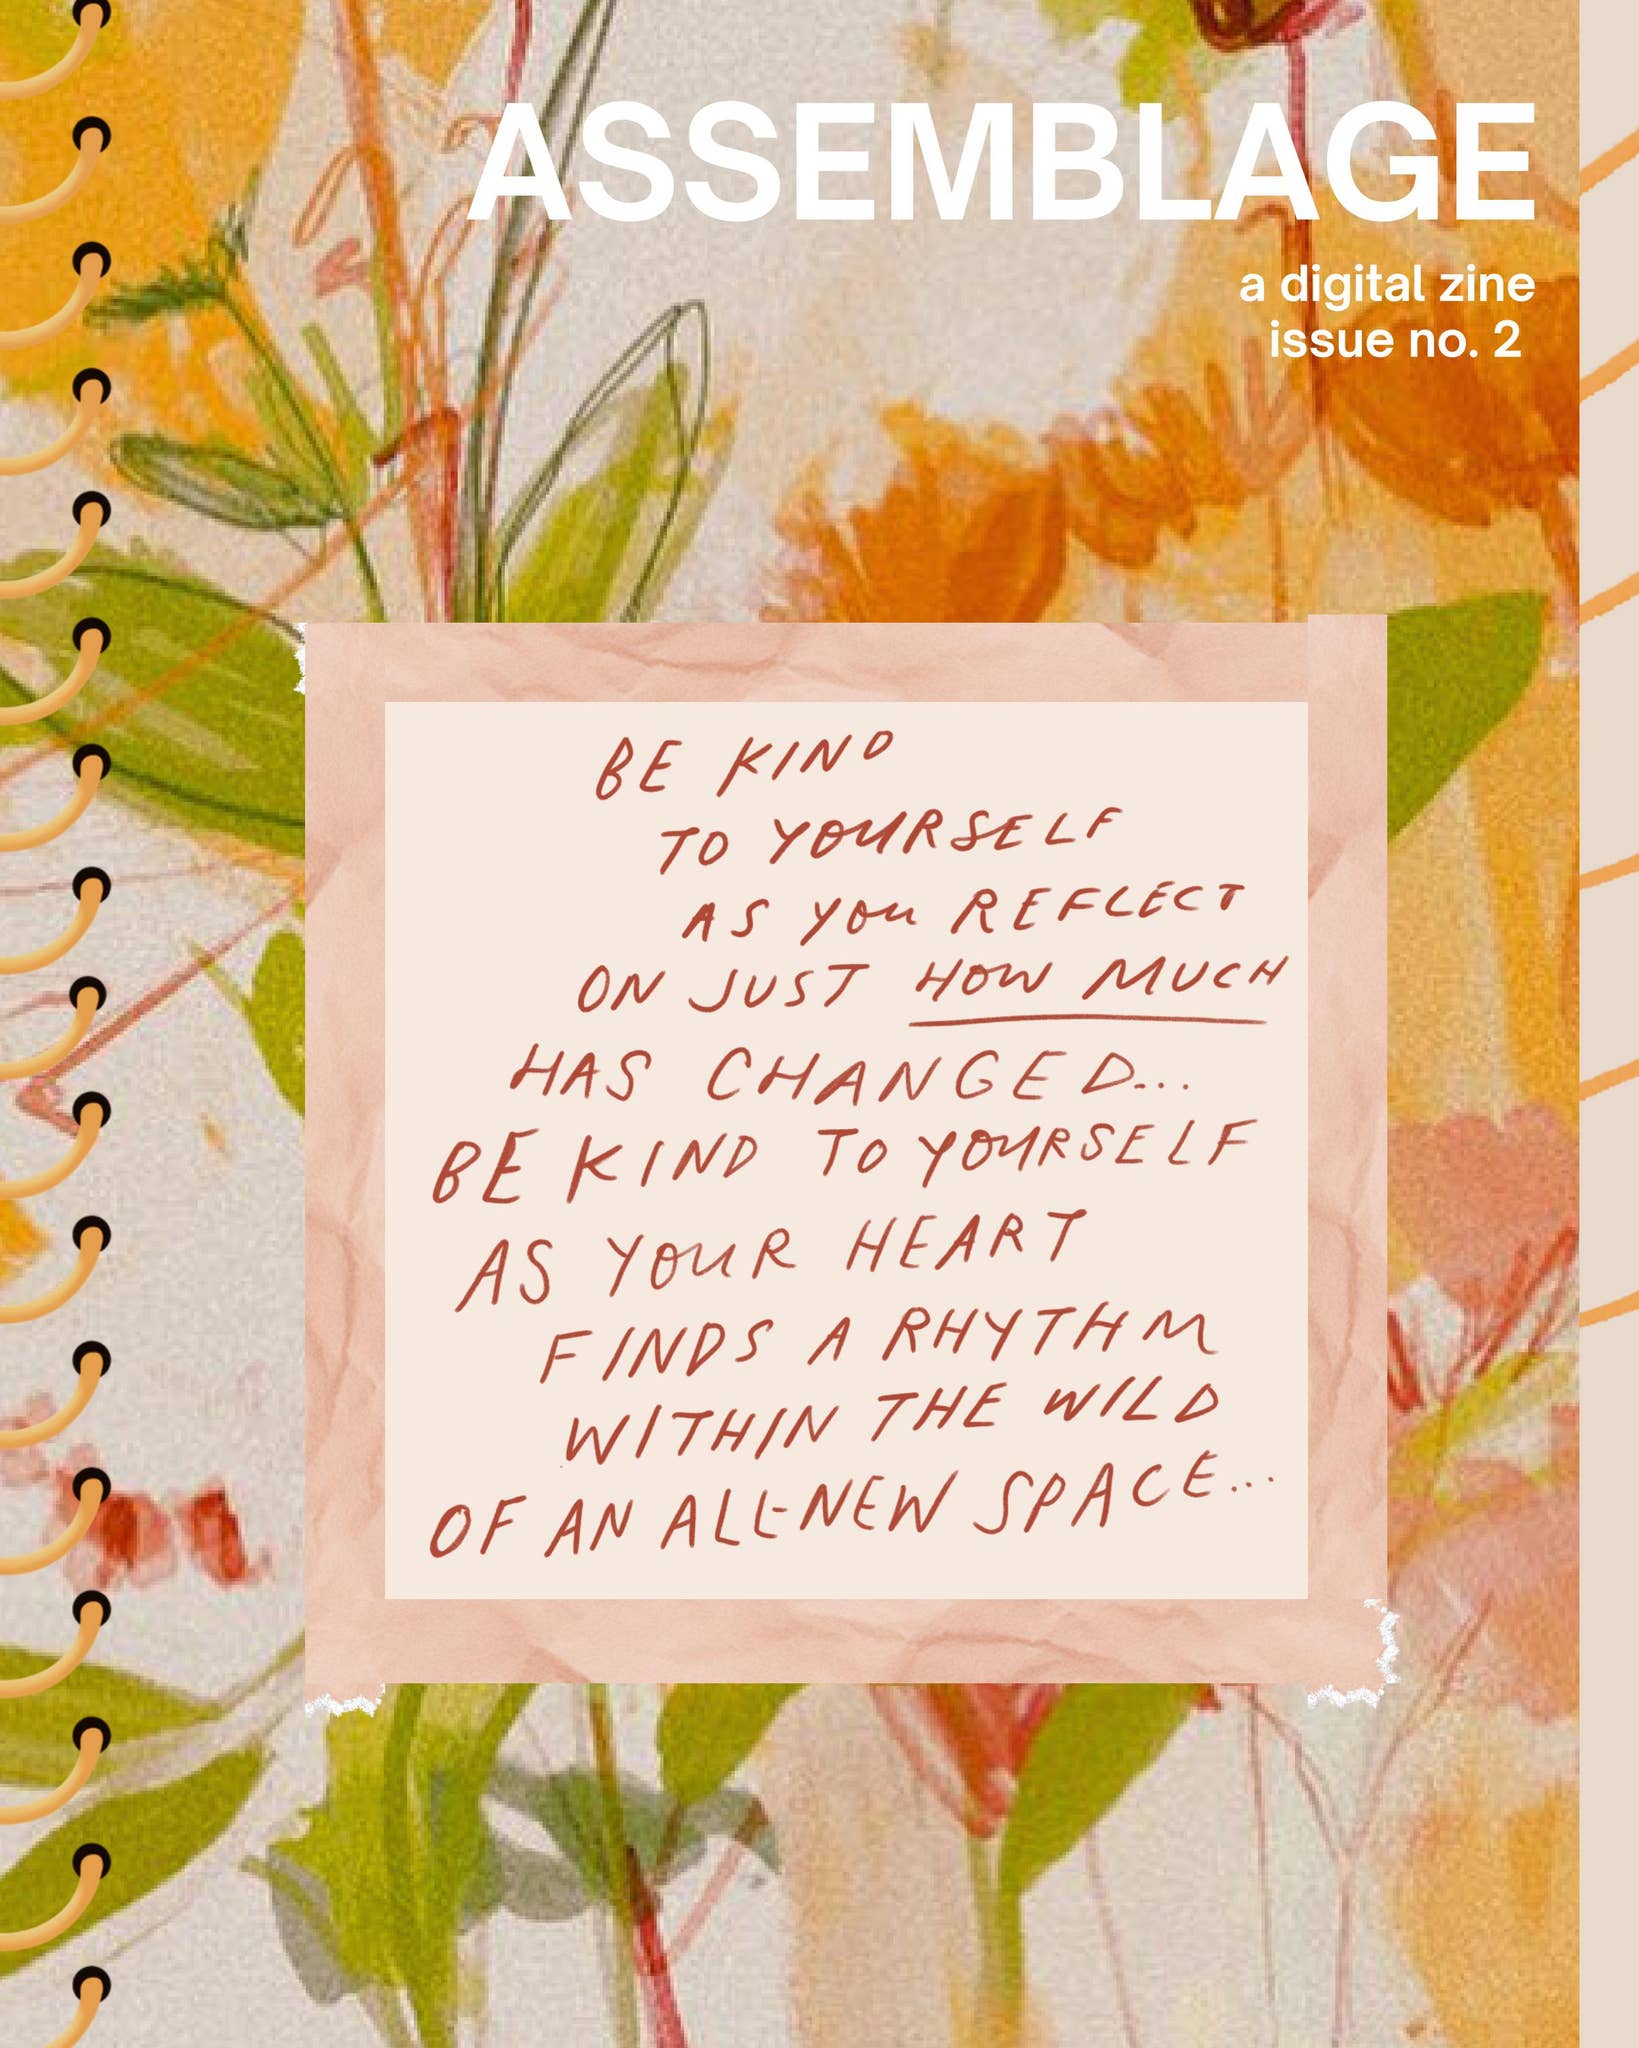 ASSEMBLAGE
a digital zine
issue no. 2
BE KIND
TO YOURSELF
AS YOU REFLECT
ON JUST HOW MUCH
HAS CHANGED...
BE KIND TO YOURSELF
AS YOUR HEART
FINDS A RHYTHM
WITHIN THE WILD
OF AN ALL-NEW SPACE...